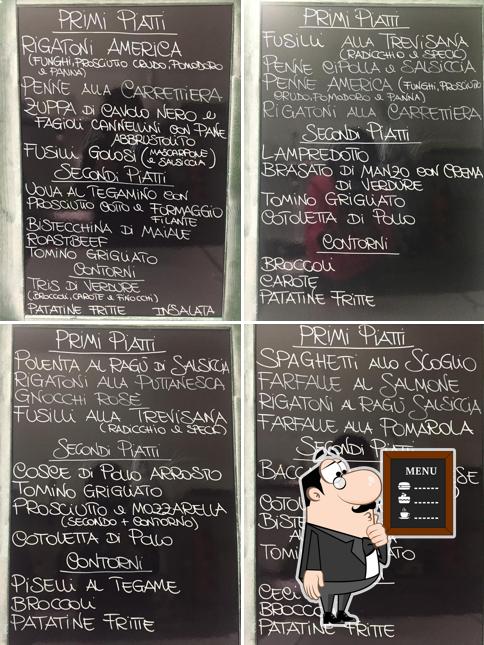 PRIMI PIATTI
RIGATONI AMERICA
(FUNGHI, PROSCIUTTO CRUDO, POMODORO
e PANNA)
PENNE ALLA CARRETTIERA
ZUPPA DI CAVOLO NERO e
FAGIOLI CANNELLINI CON PANE
ABBRUSTOLITO
FUSILLI GOLOSI (MASCARPONE
e SALSICCIA)
SECONDI PIATTI
UOVA AL TEGAMINO CON
PROSCIUTTO COTTO e FORMAGGIO
FILANTE
BISTECCHINA DI MAIALE
ROASTBEEF
TOMINO GRIGLIATO
CONTORNI
TRIS DI VERDURE
(BROCCOLI, CAROTE e FINOCCHI)
PATATINE FRITTE INSALATA
PRIMI PIATTI
FUSILLI ALLA TREVISANA
(RADICCHIO e SPECK)
PENNE CIPOLLA e SALSICCIA
PENNE AMERICA (FUNGHI, PROSCIUTTO
CRUDO, POMODORO e PANNA)
RIGATONI ALLA CARRETTIERA
SECONDI PIATTI
LAMPREDOTTO
BRASATO DI MANZO CON CREMA
DI VERDURE
TOMINO GRIGLIATO
COTOLETTA DI POLLO
CONTORNI
BROCCOLI
CAROTE
PATATINE FRITTE
PRIMI PIATTI
POLENTA AL RAGÙ DI SALSICCIA
RIGATONI ALLA PUTTANESCA
GNOCCHI ROSÉ
FUSILLI ALLA TREVISANA
(RADICCHIO e SPECK)
SECONDI PIATTI
COSCE DI POLLO ARROSTO
TOMINO GRIGLIATO
PROSCIUTTO e MOZZARELLA
(SECONDO + CONTORNO)
COTOLETTA DI POLLO
CONTORNI
PISELLI AL TEGAME
BROCCOLI
PATATINE FRITTE
PRIMI PIATTI
SPAGHETTI ALLO SCOGLIO
FARFALLE AL SALMONE
RIGATONI AL RAGÙ SALSICCIA
FARFALLE ALLA POMAROLA
SECONDI PIATTI
MENU
PATATINE FRITTE